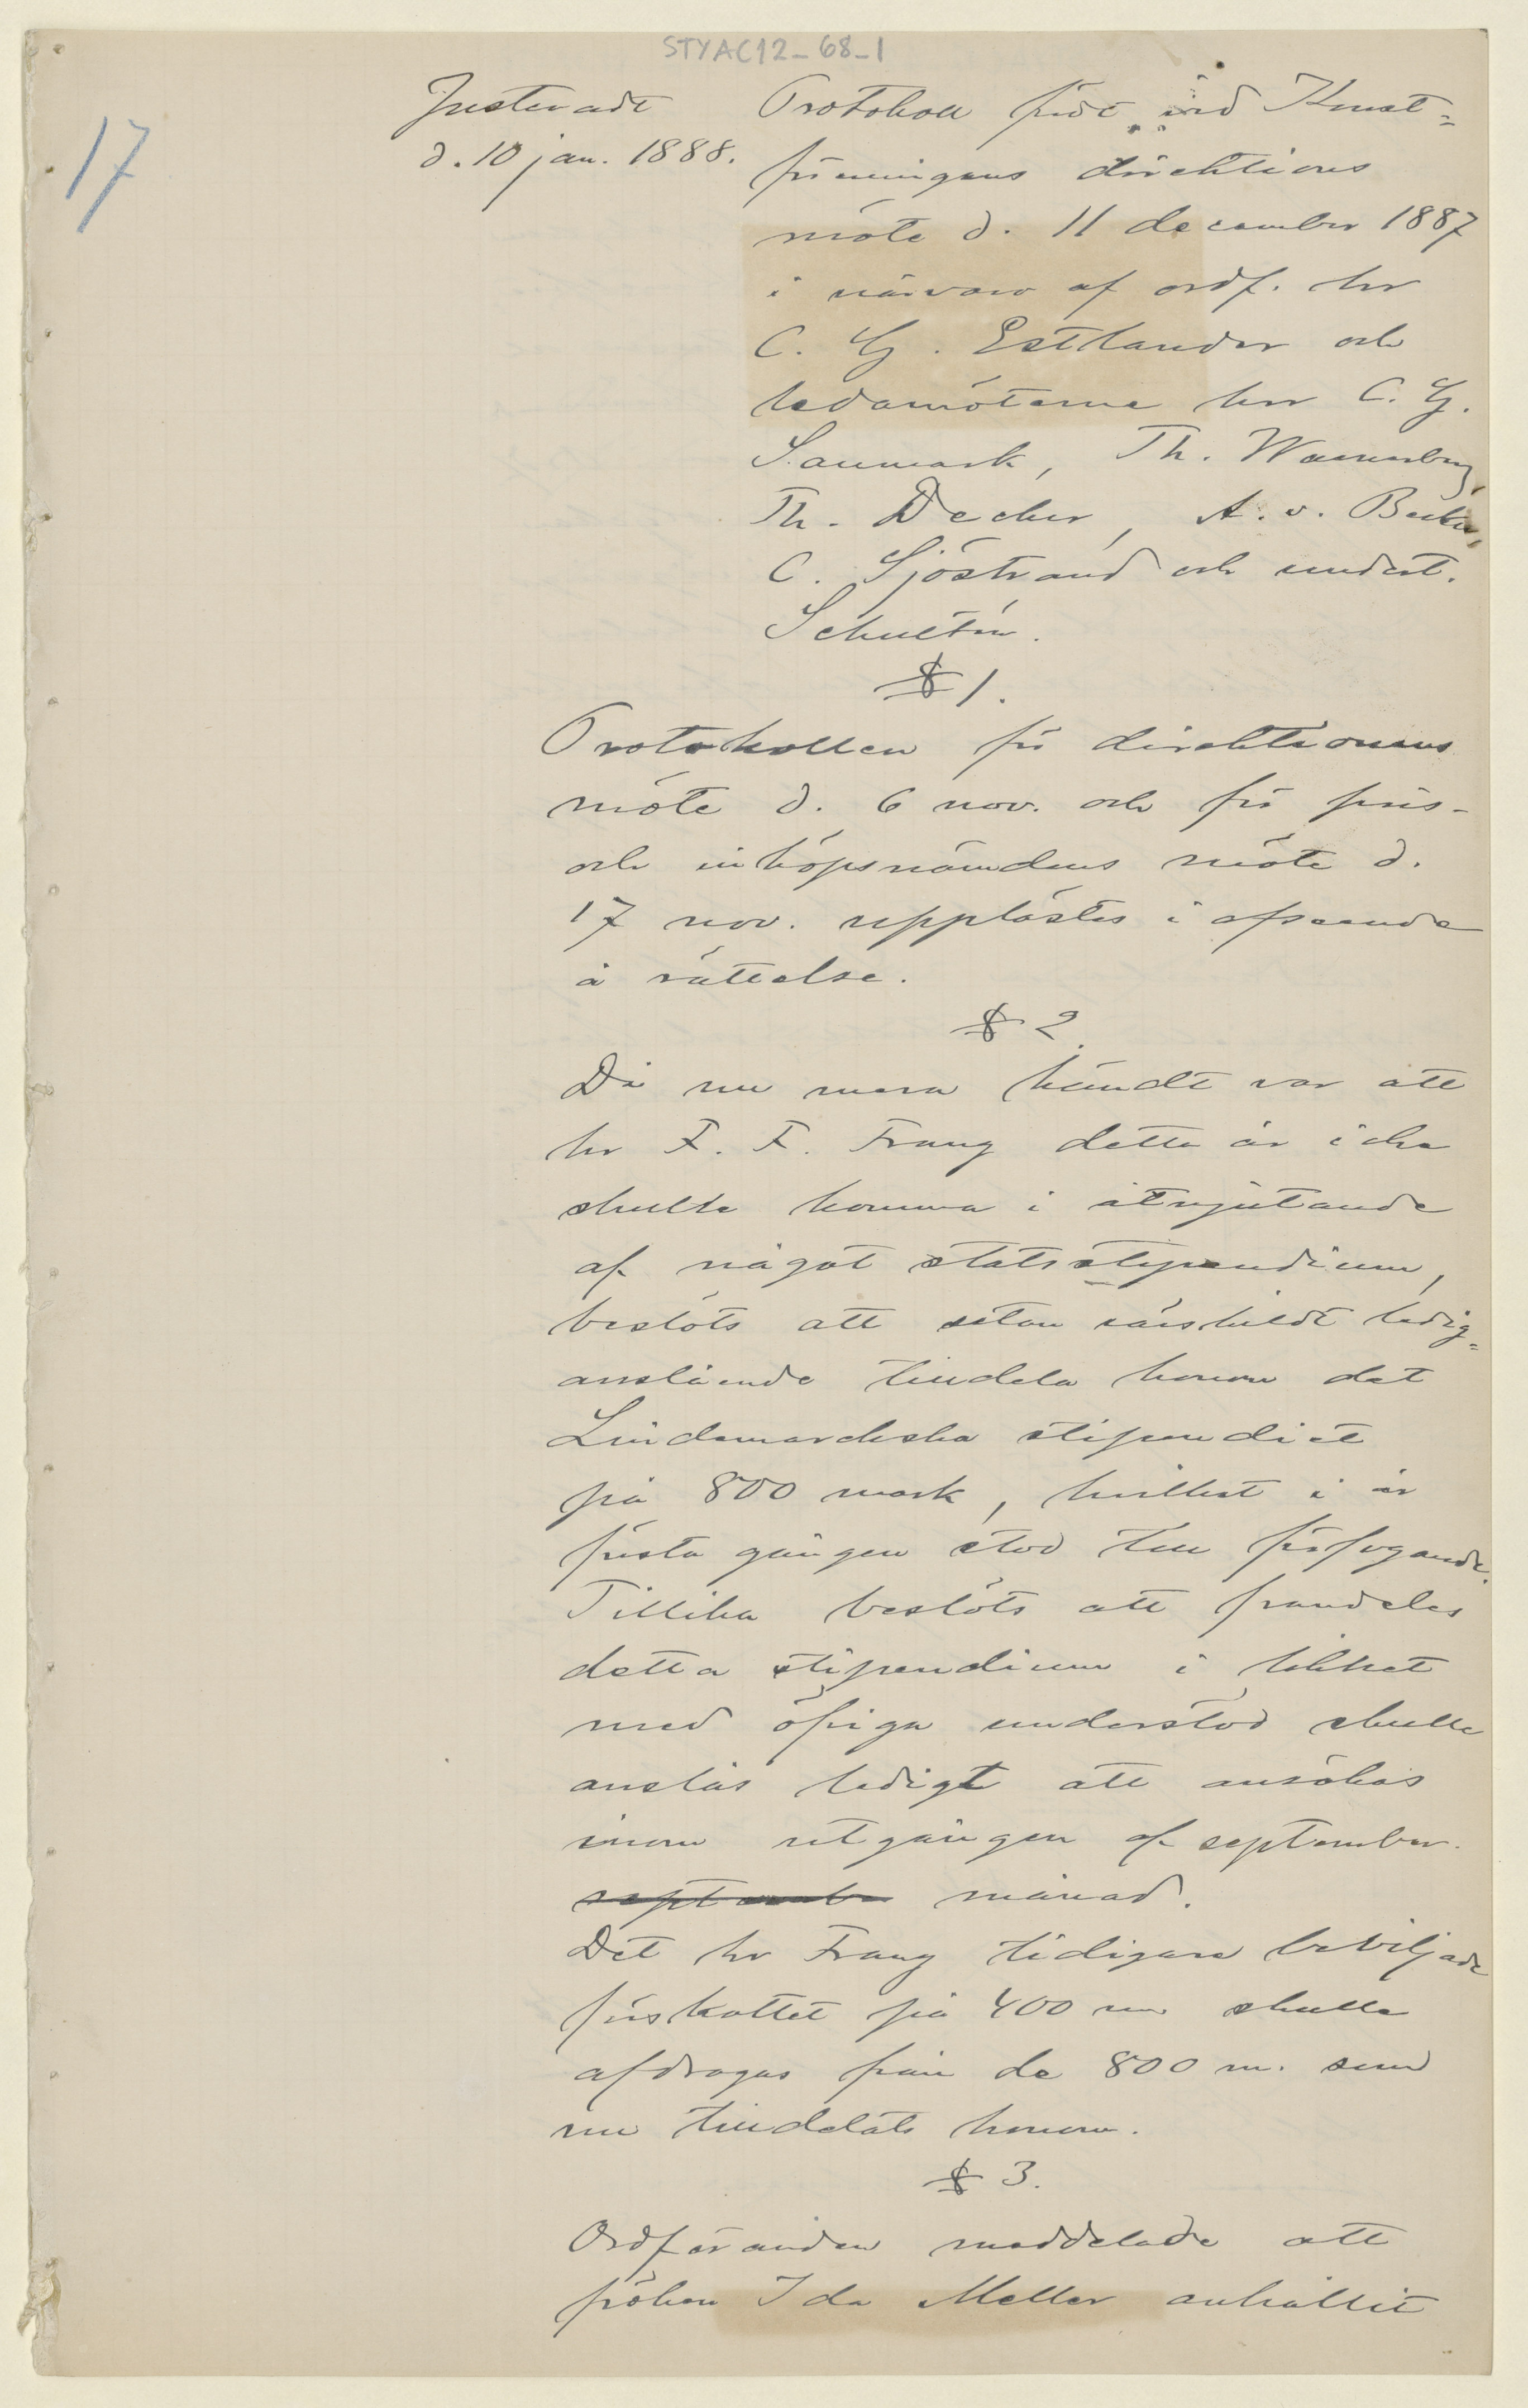 STYAC12-68-1
17
Justeradt
d. 10 jan. 1888.
Protokoll fördt vid Konst-
föreningens direktions
möte d. 11 december 1887
i närvaro af ordf. hr
C. G. Estlander och
ledamöterne hrr C. G.
Sanmark, Th. Waenerberg,
Th. Decker, A. v. Becker,
C. Sjöstrand och undert.
Schultén.
§ 1.
Protokollen för direktionens
möte d. 6 nov. och för pris-
och inköpsnämdens möte d.
17 nov. upplästes i afseende
å rättelse.
§ 2.
Då nu mera kändt var att
hr F. F. Frang detta år icke
skulle komma i åtnjutande
af något statsstipendium,
beslöts att utan särskildt ledig-
anslående tilldela honom det
Lindemarckska stipendiet
på 800 mark, hvilket i år
första gången stod till förfogande.
Tillika beslöts att framdeles
detta stipendium i likhet
med öfriga understöd skulle
anslås ledigt att ansökas
inom utgången af september.
septembe månad.
Det hr Frang tidigare beviljade
förskottet på 400 m skulle
afdragas från de 800 m. som
nu tilldelats honom.
§ 3.
Ordföranden meddelade att
fröken Ida Meller anhållit